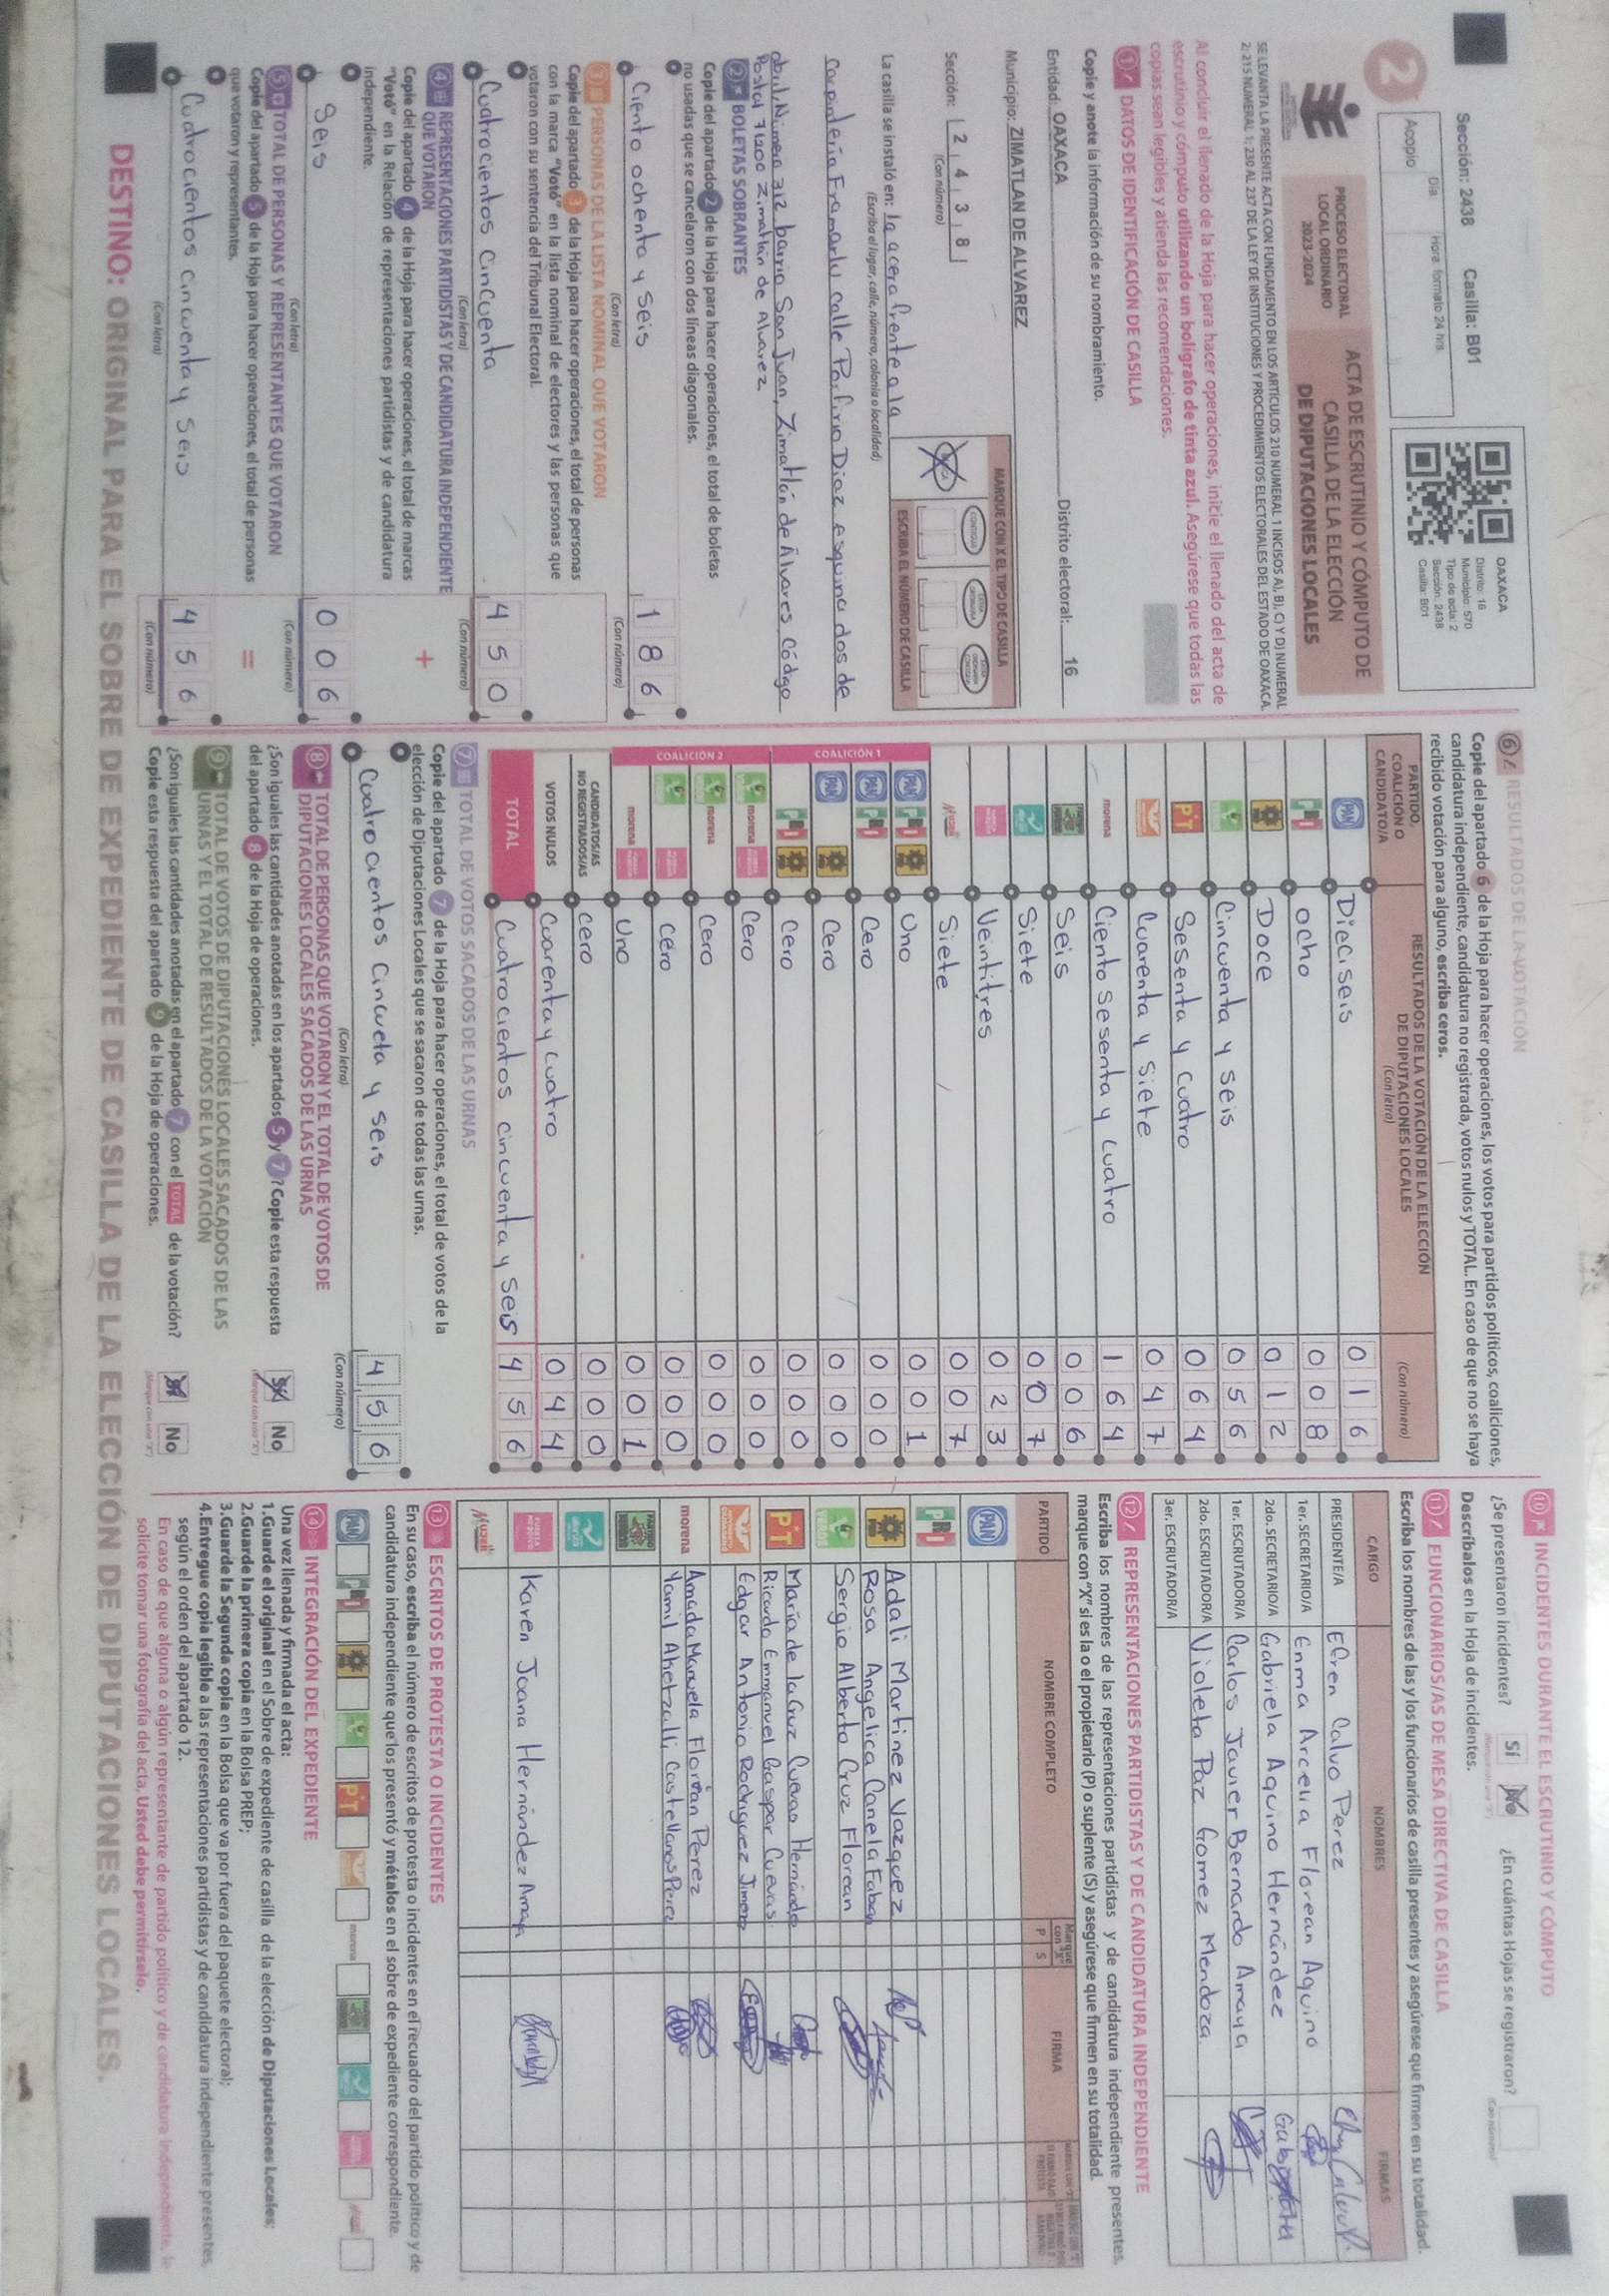 2
Sección: 2438 Casilla: B01
Día Hora formato 24 hrs
Acopio
OAXACA
Distrito: 16
Municipio: 570
Tipo de acta: 2
Sección: 2438
Casilla: B01
PROCESO ELECTORAL
LOCAL ORDINARIO
2023-2024
ACTA DE ESCRUTINIO Y CÓMPUTO DE
CASILLA DE LA ELECCIÓN
DE DIPUTACIONES LOCALES
SE LEVANTA LA PRESENTE ACTA CON FUNDAMENTO EN LOS ARTÍCULOS 210 NUMERAL 1 INCISOS A), B), C) Y D) NUMERAL
2; 215 NUMERAL 1; 230 AL 237 DE LA LEY DE INSTITUCIONES Y PROCEDIMIENTOS ELECTORALES DEL ESTADO DE OAXACA.
Al concluir el llenado de la Hoja para hacer operaciones, inicie el llenado del acta de
escrutinio y cómputo utilizando un bolígrafo de tinta azul. Asegúrese que todas las
copias sean legibles y atienda las recomendaciones.
1 DATOS DE IDENTIFICACIÓN DE CASILLA
Copie y anote la información de su nombramiento.
Entidad: OAXACA Distrito electoral: 16
Municipio: ZIMATLAN DE ALVAREZ
Sección: 2 4 3 8
(Con número)
MARQUE CON X EL TIPO DE CASILLA
ESCRIBA EL NÚMERO DE CASILLA
La casilla se instaló en: la acera frente a la
(Escriba el lugar, calle, número, colonia o localidad)
Carpintería Framarlu calle Porfirio Diaz esquina dos de
abril, Número 312 barrio San Juan, Zimatlán de Álvares código
Postal 71200 Zimatlán de Alvarez
2 BOLETAS SOBRANTES
Copie del apartado 2 de la Hoja para hacer operaciones, el total de boletas
no usadas que se cancelaron con dos líneas diagonales.
Ciento ochenta y seis 1 8 6
(Con letra) (Con número)
3 PERSONAS DE LA LISTA NOMINAL QUE VOTARON
Copie del apartado 3 de la Hoja para hacer operaciones, el total de personas
con la marca "Votó" en la lista nominal de electores y las personas que
votaron con su sentencia del Tribunal Electoral.
Cuatrocientos cincuenta 4 5 0
(Con letra) (Con número)
4 REPRESENTACIONES PARTIDISTAS Y DE CANDIDATURA INDEPENDIENTE
QUE VOTARON
Copie del apartado 4 de la Hoja para hacer operaciones, el total de marcas
"Votó" en la Relación de representaciones partidistas y de candidatura
independiente.
+
Seis 0 0 6
(Con letra) (Con número)
5 TOTAL DE PERSONAS Y REPRESENTANTES QUE VOTARON
Copie del apartado 5 de la Hoja para hacer operaciones, el total de personas
que votaron y representantes.
=
Cuatrocientos cincuenta y seis 4 5 6
(Con letra) (Con número)
6 RESULTADOS DE LA VOTACIÓN
Copie del apartado 6 de la Hoja para hacer operaciones, los votos para partidos políticos, coaliciones,
candidatura independiente, candidatura no registrada, votos nulos y TOTAL. En caso de que no se haya
recibido votación para alguno, escriba ceros.
PARTIDO, COALICIÓN O CANDIDATO/A
RESULTADOS DE LA VOTACIÓN DE LA ELECCIÓN
DE DIPUTACIONES LOCALES
(Con letra) (Con número)
PAN Dieciseis 0 1 6
PRI Ocho 0 0 8
Doce 0 1 2
VERDE Cincuenta y seis 0 5 6
PT Sesenta y cuatro 0 6 4
Cuarenta y siete 0 4 7
morena Ciento sesenta y cuatro 1 6 4
Seis 0 0 6
Siete 0 0 7
Veintitres 0 2 3
Siete 0 0 7
COALICIÓN 1
PAN PRI Uno 0 0 1
PAN PRI Cero 0 0 0
PAN Cero 0 0 0
PRI Cero 0 0 0
COALICIÓN 2
morena Cero 0 0 0
morena Cero 0 0 0
Cero 0 0 0
morena Uno 0 0 1
CANDIDATOS/AS NO REGISTRADOS/AS Cero 0 0 0
VOTOS NULOS Cuarenta y cuatro 0 4 4
TOTAL Cuatrocientos cincuenta y seis 4 5 6
7 TOTAL DE VOTOS SACADOS DE LAS URNAS
Copie del apartado 7 de la Hoja para hacer operaciones, el total de votos de la
elección de Diputaciones Locales que se sacaron de todas las urnas.
Cuatrocientos Cincueta y seis 4 5 6
(Con letra) (Con número)
8 TOTAL DE PERSONAS QUE VOTARON Y EL TOTAL DE VOTOS DE
DIPUTACIONES LOCALES SACADOS DE LAS URNAS
¿Son iguales las cantidades anotadas en los apartados 5 y 7? Copie esta respuesta
del apartado 8 de la Hoja de operaciones.
Sí No
9 TOTAL DE VOTOS DE DIPUTACIONES LOCALES SACADOS DE LAS
URNAS Y EL TOTAL DE RESULTADOS DE LA VOTACIÓN
¿Son iguales las cantidades anotadas en el apartado 7 con el TOTAL de la votación?
Copie esta respuesta del apartado 9 de la Hoja de operaciones.
Sí No
10 INCIDENTES DURANTE EL ESCRUTINIO Y CÓMPUTO
¿Se presentaron incidentes? Sí No ¿En cuántas Hojas se registraron?
(Con número)
Descríbalos en la Hoja de incidentes.
11 FUNCIONARIOS/AS DE MESA DIRECTIVA DE CASILLA
Escriba los nombres de las y los funcionarios de casilla presentes y asegúrese que firmen en su totalidad.
CARGO NOMBRES FIRMAS
PRESIDENTE/A Efren Calvo Perez
1er. SECRETARIO/A Enma Arcelia Florean Aquino
2do. SECRETARIO/A Gabriela Aquino Hernández
1er. ESCRUTADOR/A Carlos Javier Bernardo Amaya
2do. ESCRUTADOR/A Violeta Paz Gomez Mendoza
3er. ESCRUTADOR/A
12 REPRESENTACIONES PARTIDISTAS Y DE CANDIDATURA INDEPENDIENTE
Escriba los nombres de las representaciones partidistas y de candidatura independiente presentes,
marque con "X" si es la o el propietario (P) o suplente (S) y asegúrese que firmen en su totalidad.
PARTIDO NOMBRE COMPLETO Marque con "X" P S FIRMA
PAN
PRI
Adali Martinez Vazquez
Rosa Angelica Canela Faban
VERDE Sergio Alberto Cruz Florean
PT María de la Cruz Cuevas Hernández
Ricardo Emmanuel Gaspar Cuevas
Edgar Antonio Rodriguez Jimenez
morena Amada Manuela Florean Perez
Yamil Ahetzalli Castellanos Perez
Karen Joana Hernández Amaya
13 ESCRITOS DE PROTESTA O INCIDENTES
En su caso, escriba el número de escritos de protesta o incidentes en el recuadro del partido político y de
candidatura independiente que los presentó y métalos en el sobre de expediente correspondiente.
PAN PRI PT morena
14 INTEGRACIÓN DEL EXPEDIENTE
Una vez llenada y firmada el acta:
1.Guarde el original en el Sobre de expediente de casilla de la elección de Diputaciones Locales;
2.Guarde la primera copia en la Bolsa PREP;
3.Guarde la Segunda copia en la Bolsa que va por fuera del paquete electoral;
4.Entregue copia legible a las representaciones partidistas y de candidatura independiente presentes,
según el orden del apartado 12.
En caso de que alguna o algún representante de partido político y de candidatura independiente, le
solicite tomar una fotografía del acta, Usted debe permitírselo.
DESTINO: ORIGINAL PARA EL SOBRE DE EXPEDIENTE DE CASILLA DE LA ELECCIÓN DE DIPUTACIONES LOCALES.